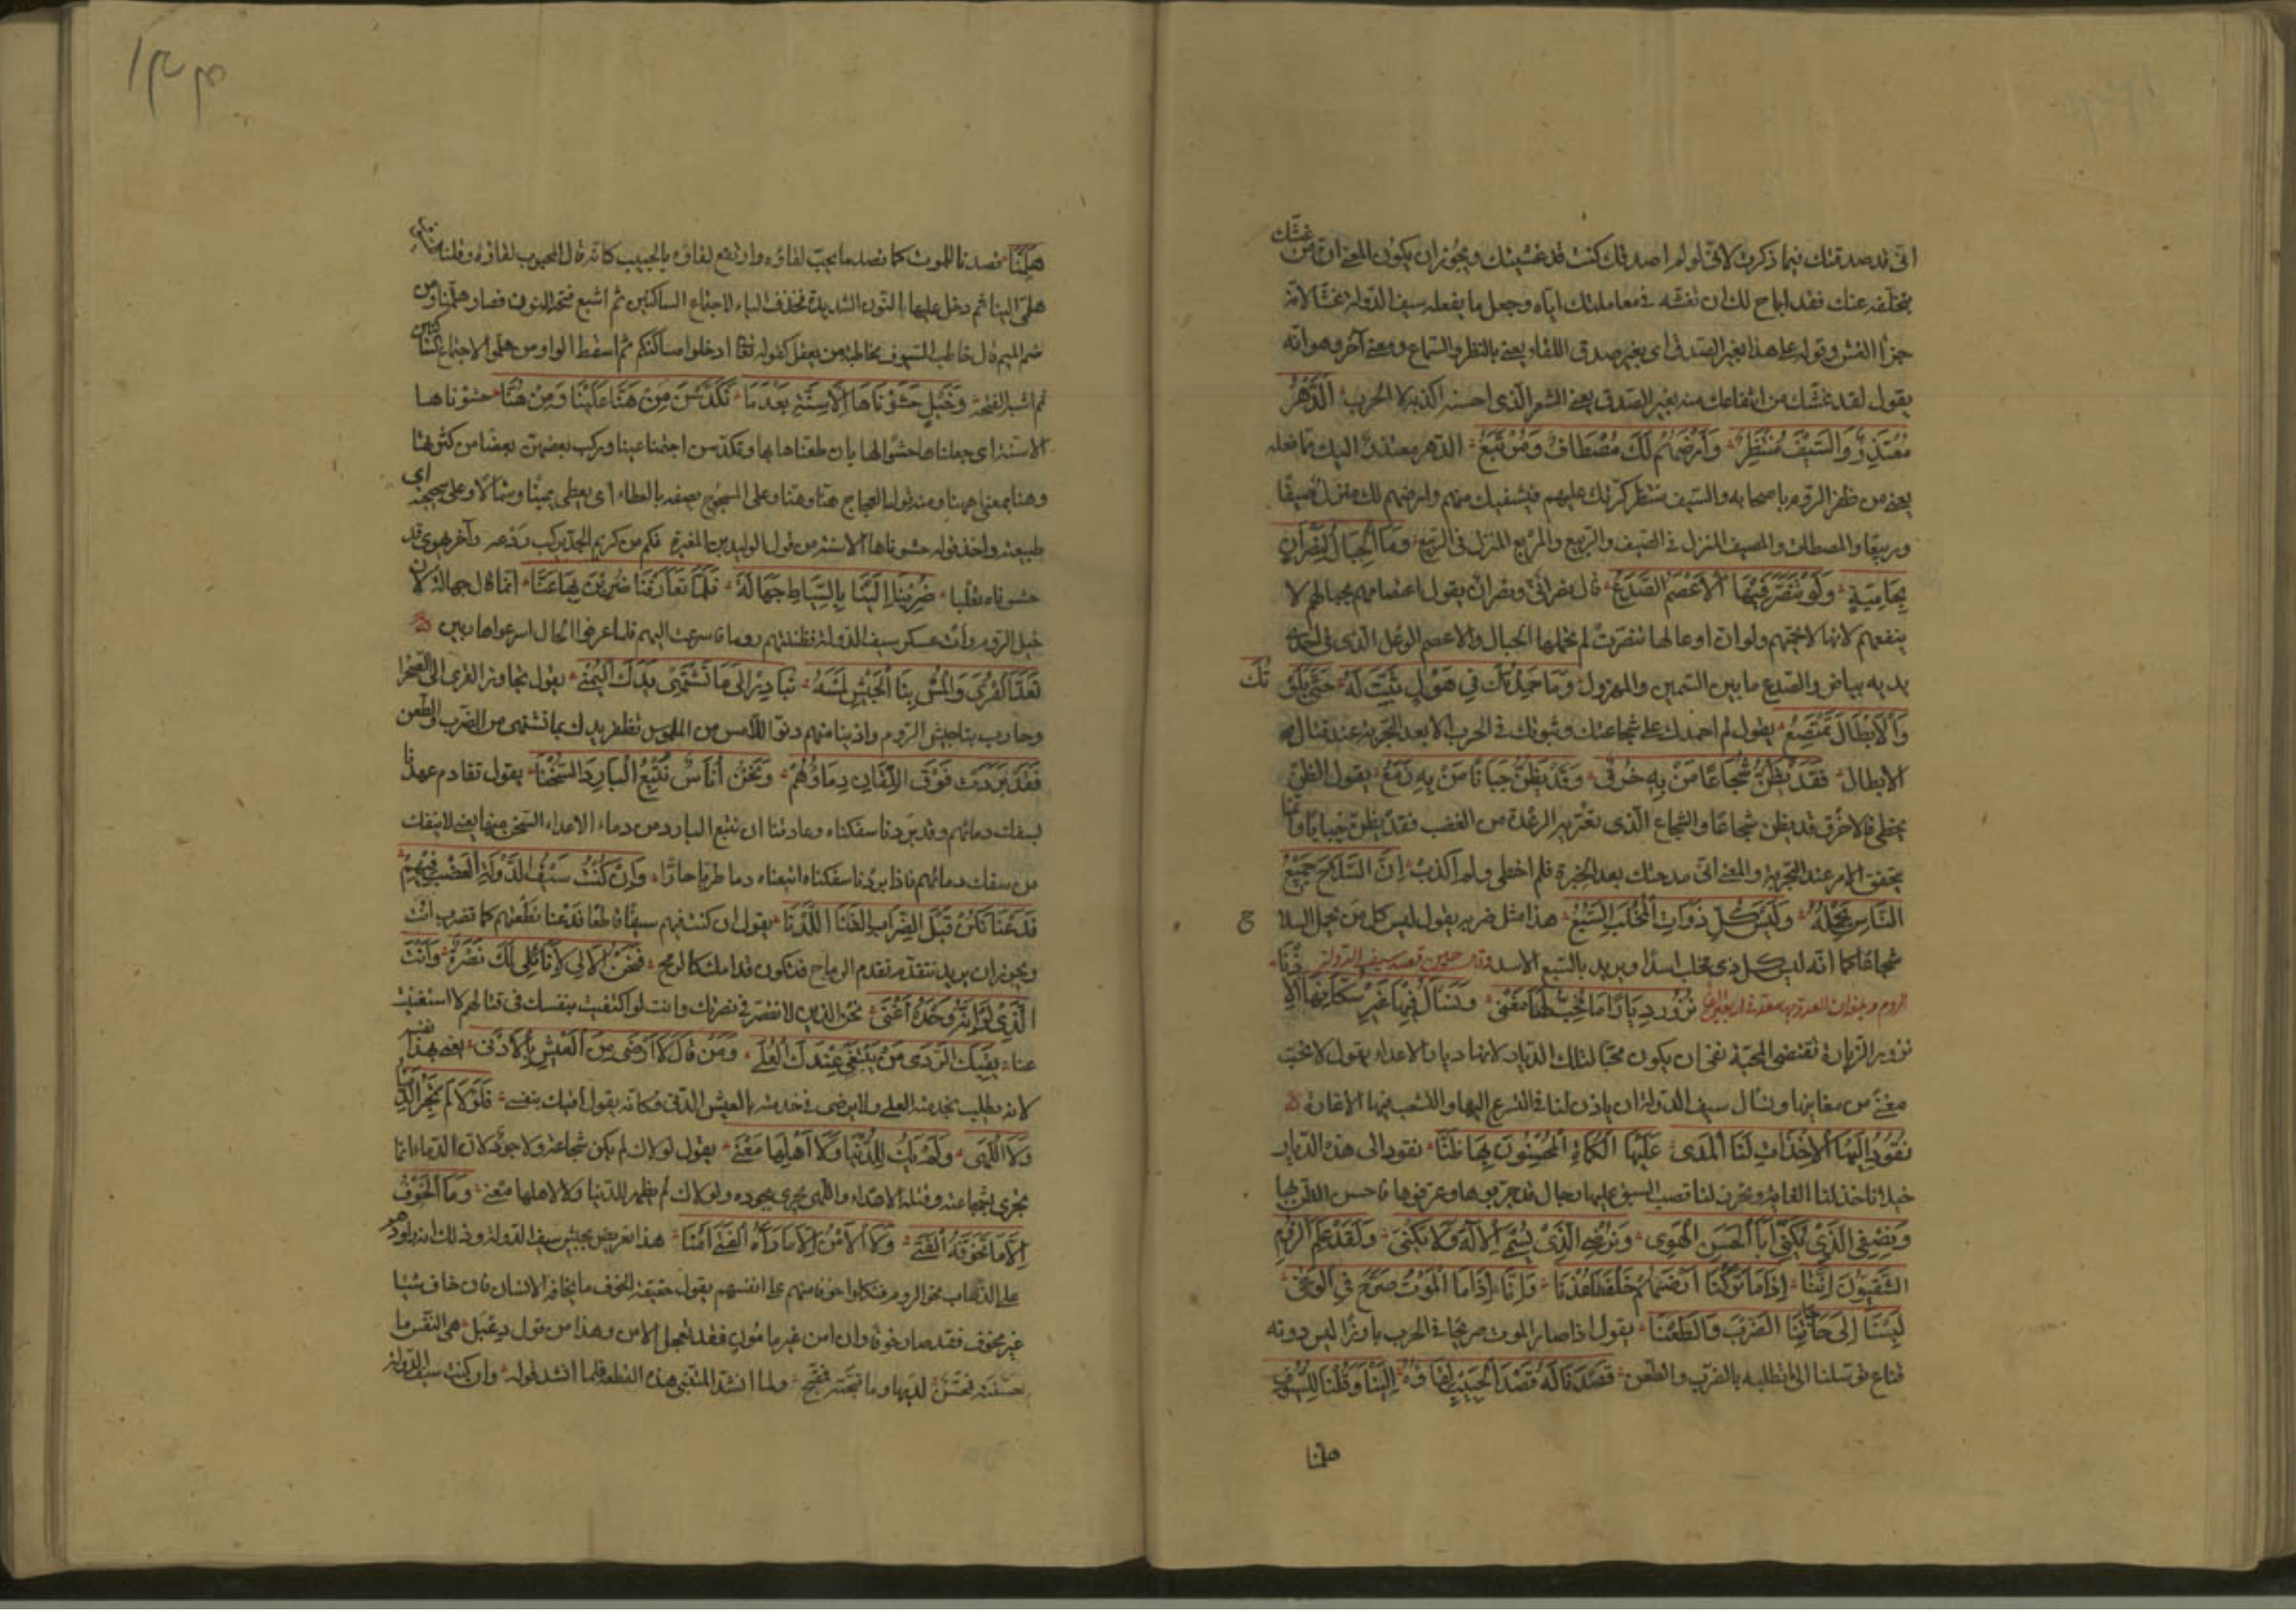 انى قد صدقتك فيما ذكرت لانى لو لم اصدقك كنت قد غششتك ويجوز ان يكون المعنى ان من غشك
بتخلفه عنك فقد اباح لك ان تغشه فى معاملتك اياه وجعل ما يفعله سيف الدولة غشا لانه
جزاء الغش وقوله على هذا بغير الصدق اى بغير صدق اللقاء يعنى بالنظر والسماع ومعنى آخر وهو انه
يقول لقد غشك من انتفاعك منه بغير الصدق يعنى الشعر الذى احسنه اكذبه لا الحرب الدَّهْرُ
مُعْتَذِرٌ وَالسَّيْفُ مُنْتَظِرٌ وَأَرْضُهُمْ لَكَ مُصْطَافٌ وَمُرْتَبَعُ الدهر معتذر اليك مما فعله
يعنى من ظفر الروم باصحابه والسيف منتظر كرتك عليهم فيشفيك منهم وارضهم لك منزل صيفا
وربيعا والمصطاف والمصيف المنزل فى الصيف والربيع والمرتبع المنزل فى الربيع وَمَا الْجِبَالُ لِنَصْرَانٍ
بِحَامِيَةٍ وَلَوْ تَنَصَّرَ فِيهَا الْأَعْصَمُ الصَّدَعُ قال نصرانى ونصران يقول اعتصامهم بجبالهم لا
ينفعهم لانها لا تحميهم ولو ان اوعالها تنصرت لم تحمها الجبال والاعصم الوعل الذى فى احدى
يديه بياض والصدع ما بين السمين والمهزول وَمَا حَمِدْتُكَ فِي هَوْلٍ ثَبَتَّ لَهُ حَتَّى بَلَوْتُكَ
وَالْأَبْطَالُ تَمْتَصِعُ يقول لم احمدك على شجاعتك وثبوتك فى الحرب الا بعد التجربة عند قتال
الابطال فَقَدْ يُظَنُّ شُجَاعًا مَنْ بِهِ خُرُقٌ وَقَدْ يُظَنُّ جَبَانًا مَنْ بِهِ زَمَعُ يقول الظن
يخطى فالاخرق قد يظن شجاعا والشجاع الذى تعتريه الرعدة من الغضب فقد يظن جبانا وانما
يتحقق الامر عند التجربة والمعنى انى مدحتك بعد الخبرة فلم اخطى ولم اكذب إِنَّ السِّلَاحَ جَمِيعُ
النَّاسِ تَحْمِلُهُ وَلَيْسَ كُلُّ ذَوَاتِ الْمِخْلَبِ السَّبُعُ هذا مثل ضربه يقول ليس كل من يحمل السلا ح
شجاعا كما انه ليس كل ذى مخلب اسدا ويريد بالسبع الاسد وقال حين قصد سيف الدولة
الروم نَزُورُ دِيَارًا مَا نُحِبُّ لَهَا مَغْنَى وَنَسْأَلُ فِيهَا غَيْرَ سُكَّانِهَا الْإِذْنَا
نزور الزيارة تقتضى المحبة نفى ان يكون محبا لتلك الديار لانها ديار الاعداء يقول لا نحب
مغنى من مغانيها ونسأل سيف الدولة ان ياذن لنا فى التسرع اليها والتشعب فيها الاغارة
نَقُودُ إِلَيْهَا الْآخِذَاتِ لَنَا الْمَدَى عَلَيْهَا الْكُمَاةُ الْمُحْسِنُونَ بِهَا ظَنَّا نقود الى هذه الديار
خيلا تاخذ لنا الغاية وتحرز لنا قصب السبق عليها رجال قد جربوها وعرفوها فاحسن الظن بها
وَنُصْفِي الَّذِي يُكْنَى أَبَا الْحَسَنِ الْهَوَى وَنُرْضِي الَّذِي يُسْمَى الْإِلَهَ وَلَا يُكْنَى وَلَقَدْ عَلِمَ الرُّومُ
الشَّقِيُّونَ أَنَّنَا إِذَا مَا تَرَكْنَا أَرْضَهُمْ خَلْفَنَا عُدْنَا وَإِنَّا إِذَا مَا الْمَوْتُ صَرَّحَ فِي الْوَغَى
لَبِسْنَا إِلَى حَاجَاتِنَا الضَّرْبَ وَالطَّعْنَا يقول اذا صار الموت صريحا فى الحرب بارزا ليس دونه
قناع توسلنا الى ما نطلبه بالضرب والطعن قَصَدْنَا لَهُ قَصْدَ الْحَبِيبِ لِقَاؤُهُ إِلَيْنَا وَقُلْنَا لِلسُّيُوفِ
هلمنا
١٣٣
هَلُمُّنَا قصدنا للموت كما نقصد ما يحب لقاؤه وارتفع لقاؤه بالحبيب كانه قال المحبوب لقاؤه وقلنا
هلمى الينا ثم دخل عليها النون الشديدة فحذف الياء لاجتماع الساكنين ثم اشبع فتحة النون فصار هلمنا ومن
ضم الميم قال خاطب السيوف مخاطبة من يعقل كقوله تعالى ادخلوا مساكنكم ثم اسقط الواو من هلموا لاجتماع الساكنين
ثم اشبع الفتحة وَخَيْلٍ حَشَوْنَاهَا الْأَسِنَّةَ بَعْدَمَا تَكَدَّسْنَ مِنْ هَنَّا عَلَيْنَا وَمِنْ هَنَّا حشوناها
الاسنة اى جعلناها حشوا لها بان طعناها بها وتكدسن اجتمعن علينا وركب بعضهن بعضا من كثرتها
وهنا بمعنى ههنا ومنه قول العجاج هنا وهنا وعلى المسجوح يصفه بالعطاء اى يعطى يمينا وشمالا وعلى سجيحة اى
طبيعته واخذ قوله حشوناها الاسنة من قول الوليد بن المغيرة فكم من كريم الجد يركب ردعه وآخر يهوى قد
حشوناه ثعلبا ضَرَبْنَ إِلَيْنَا بِالسِّيَاطِ جَهَالَةً فَلَمَّا تَعَارَفْنَا ضُرِبْنَ بِهَا عَنَّا انما قال جهالة لان
خيل الروم رأت عسكر سيف الدولة فظنتهم روما فاسرعت اليهم فلما عرفوا الحال اسرعوا هاربين
تَعَدَّ الْقُرَى وَالْمُسْ بِنَا الْجَيْشَ لَمْسَةً نُبَادِرْ إِلَى مَا تَشْتَهِي يَدُكَ الْيُمْنَى يقول تجاوز القرى الى الصحرا
وحارب بنا جيش الروم وادننا منهم دنو اللامس من الملموس تظفر يدك بما تشتهى من الضرب والطعن
فَقَدْ بَرَدَتْ فَوْقَ اللُّقَانِ دِمَاؤُهُمْ وَنَحْنُ أُنَاسٌ نُتْبِعُ الْبَارِدَ السُّخْنَا يقول تقادم عهدنا
بسفك دمائهم وقد برد ما سفكناه وعادتنا ان نتبع البارد من دماء الاعداء السخن منها يعنى لا ننفك
من سفك دمائهم فاذا برد ما سفكناه اتبعناه دما طريا حارا وَإِنْ كُنْتَ سَيْفَ الدَّوْلَةِ الْعَضْبَ فِيهِمُ
فَدَعْنَا نَكُنْ قَبْلَ الضِّرَابِ الْقَنَا اللُّدْنَا يقول ان كنت فيهم سيفا قاطعا فدعنا نطعنهم كما تضرب انت
ويجوز ان يريد نتقدم تقدم الرماح فنكون قدامك كالرمح فَنَحْنُ الْأُلَى لَا نَأْتَلِي لَكَ نُصْرَةً وَأَنْتَ
الَّذِي لَوْ أَنَّهُ وَحْدَهُ أَغْنَى نحن الذين لا نقصر فى نصرتك وانت لو اكتفيت بنفسك فى قتالهم لاستغنيت
عنا يَقِيكَ الرَّدَى مَنْ يَبْتَغِي عِنْدَكَ الْعُلَى وَمَنْ قَالَ لَا أَرْضَى مِنَ الْعَيْشِ بِالْأَدْنَى يعنى بهذا نفسه
لانه يطلب بخدمته العلى ولا يرضى فى خدمته بالعيش الدنى فكانه يقول افديك بنفسى فَلَوْلَاكَ لَمْ تَجْرِ الدِّمَا
وَلَا اللُّهَى وَلَمْ يَكُ لِلدُّنْيَا وَلَا أَهْلِهَا مَعْنَى يقول لولاك لم يكن شجاعة ولا جود لان الدماء انما
تجرى بشجاعته وقتله الاعداء واللهى تجرى بجوده ولولاك لم يظهر للدنيا ولا لاهلها معنى وَمَا الْخَوْفُ
إِلَّا مَا تَخَوَّفَهُ الْفَتَى وَلَا الْأَمْنُ إِلَّا مَا رَآهُ الْفَتَى أَمْنَا هذا تعريض بجيش سيف الدولة وذلك انه راودهم
على الذهاب نحو الروم فنكلوا خوفا منهم على انفسهم يقول حقيقة الخوف ما يخافه الانسان فان خاف شيئا
غير مخوف فقد صار خوفا وان امن غير مامون فقد تعجل الامن وهذا من قول دعبل هى النفس ما
حسنته فمحسن لديها وما قبحته فمقبح ولما انشد المتنبى هذه القطعة فلما انشد قوله وان كنت سيف الدولة